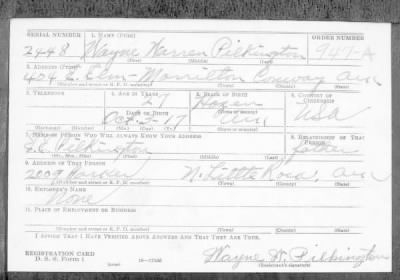 SERIAL NUMBER 1. NAME (Print) ORDER NUMBER
2448 Wayne Warren Pilkington 947A
(First) (Middle) (Last)
2. ADDRESS (Print)
404 E. Elm - Morrilton Conway Ark
(Number and street or R. F. D. number) (Town) (County) (State)
3. TELEPHONE 4. AGE IN YEARS 5. PLACE OF BIRTH 6. COUNTRY OF CITIZENSHIP
27 Hazen USA
DATE OF BIRTH (Town or county)
Oct. 17 Ark
(Exchange) (Number) (Mo.) (Day) (Yr.) (State or country)
7. NAME OF PERSON WHO WILL ALWAYS KNOW YOUR ADDRESS 8. RELATIONSHIP OF THAT PERSON
Pilkington Father
(Mr., Mrs., Miss) (First) (Middle) (Last)
9. ADDRESS OF THAT PERSON
2009 N. Little Rock, Ark
(Number and street or R. F. D. number) (Town) (County) (State)
10. EMPLOYER'S NAME
None
11. PLACE OF EMPLOYMENT OR BUSINESS
(Number and street or R. F. D. number) (Town) (County) (State)
I AFFIRM THAT I HAVE VERIFIED ABOVE ANSWERS AND THAT THEY ARE TRUE.
REGISTRATION CARD
D. S. S. Form 1 Wayne W. Pilkington
(Registrant's signature)